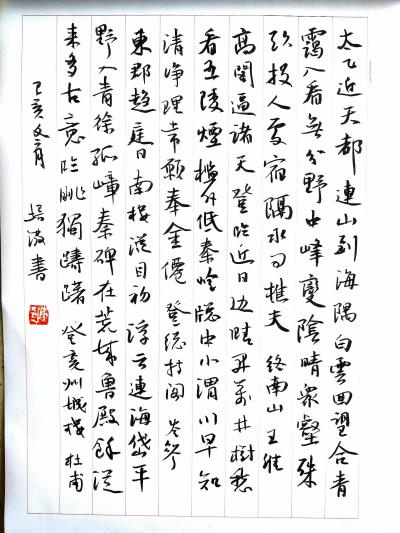 太乙近天都連山到海隅白雲回望合青
靄入看無分野中峰變陰晴衆壑殊
欲投人處宿隔水問樵夫 終南山 王維
高閣逼諸天登臨近日邊晴開萬井樹愁
看五陵煙檻外低秦嶺窓中小渭川早知
清淨理常願奉金僊 登總持閣 岑參
東郡趨庭日南樓縱目初浮雲連海岱平
野入青徐孤嶂秦碑在荒城魯殿餘從
來多古意臨眺獨躊躇 登兗州城樓 杜甫
己亥 培波書